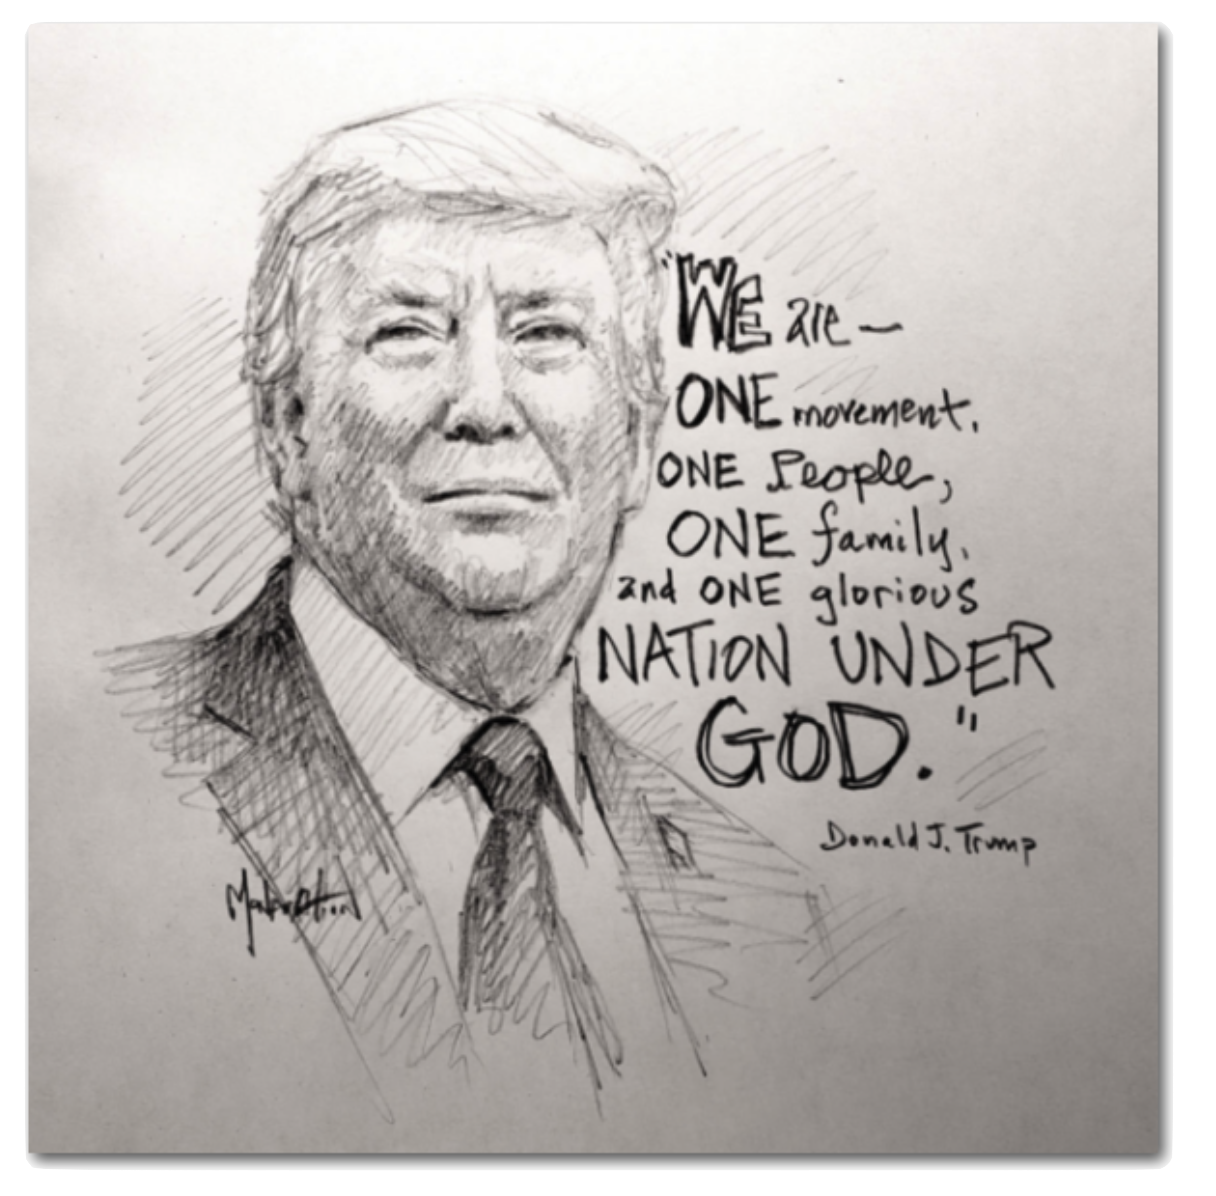 "WE are —
ONE movement.
ONE People,
ONE family.
and ONE glorious
NATION UNDER
GOD."
Donald J. Trump